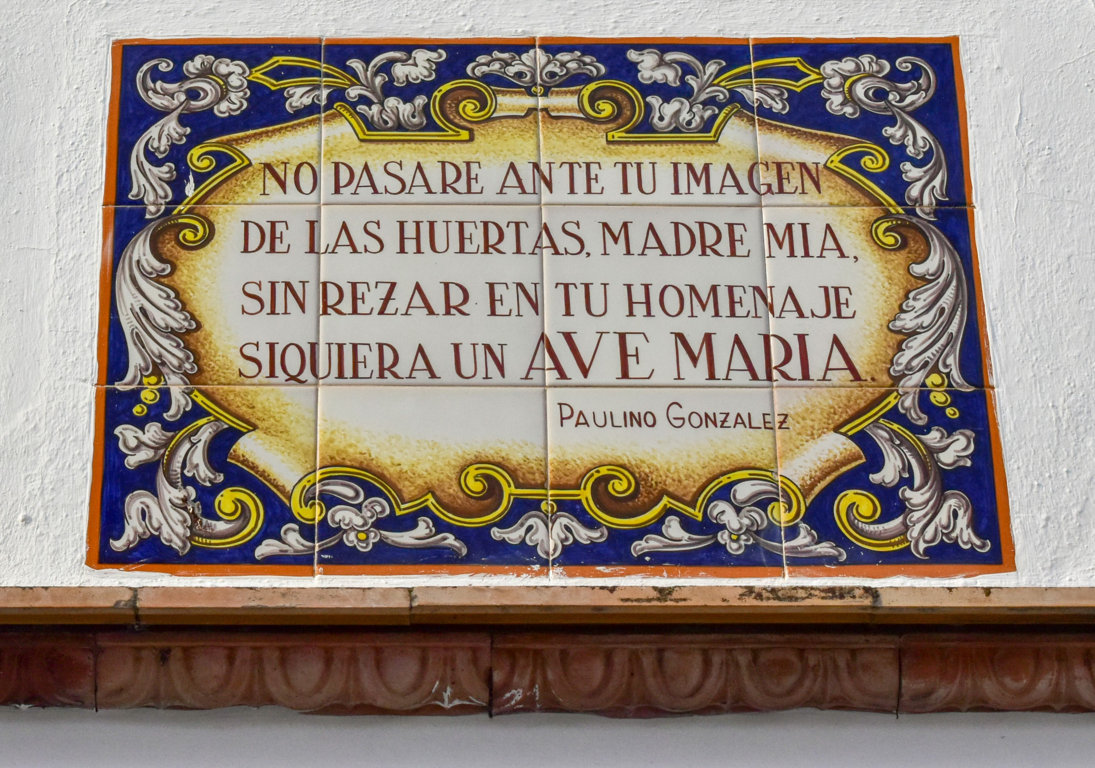 NO PASARE ANTE TU IMAGEN
DE LAS HUERTAS, MADRE MIA,
SIN REZAR EN TU HOMENAJE
SIQUIERA UN AVE MARIA.
PAULINO GONZALEZ